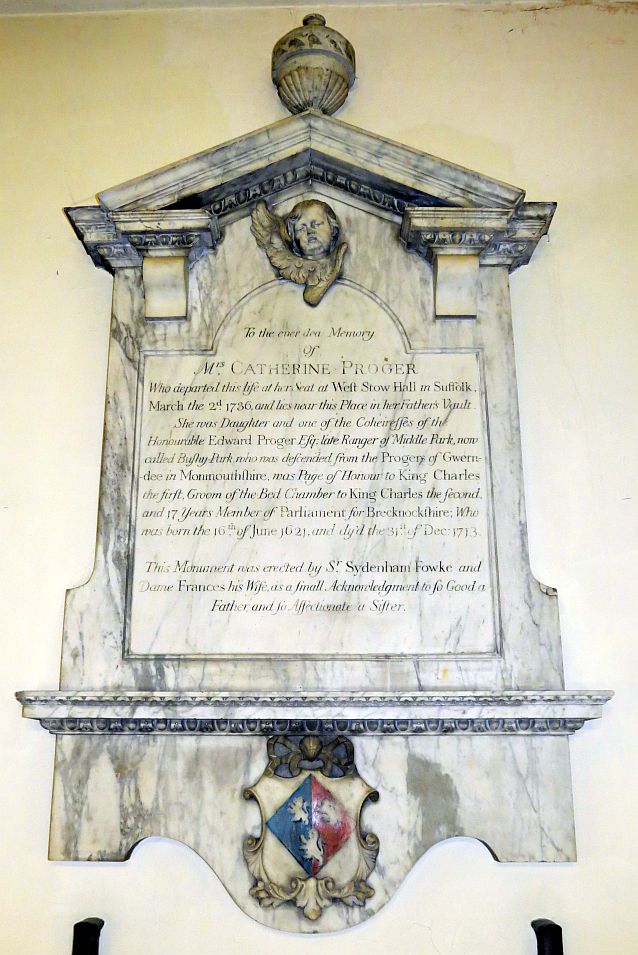 To the ever dea Memory
of
Mrs. CATHERINE PROGER
Who departed this life at her Seat at West Stow Hall in Suffolk,
March the 2d 1736, and lies near this Place in her Father's Vault.
She was Daughter and one of the Coheiresses of the
Honourable Edward Proger Esq; late Ranger of Middle Park, now
called Bushy-Park, who was descended from the Progers of Gwern-
dee in Monmouthshire, was Page of Honour to King Charles
the first, Groom of the Bed Chamber to King Charles the second,
and 17 Years Member of Parliament for Brecknockshire; Who
was born the 16th of June 1621, and dy'd the 31st of Dec: 1713.
This Monument was erected by Sr. Sydenham Fowke and
Dame Frances his Wife, as a small Acknowledgment to so Good a
Father, and so Affectionate a Sister.